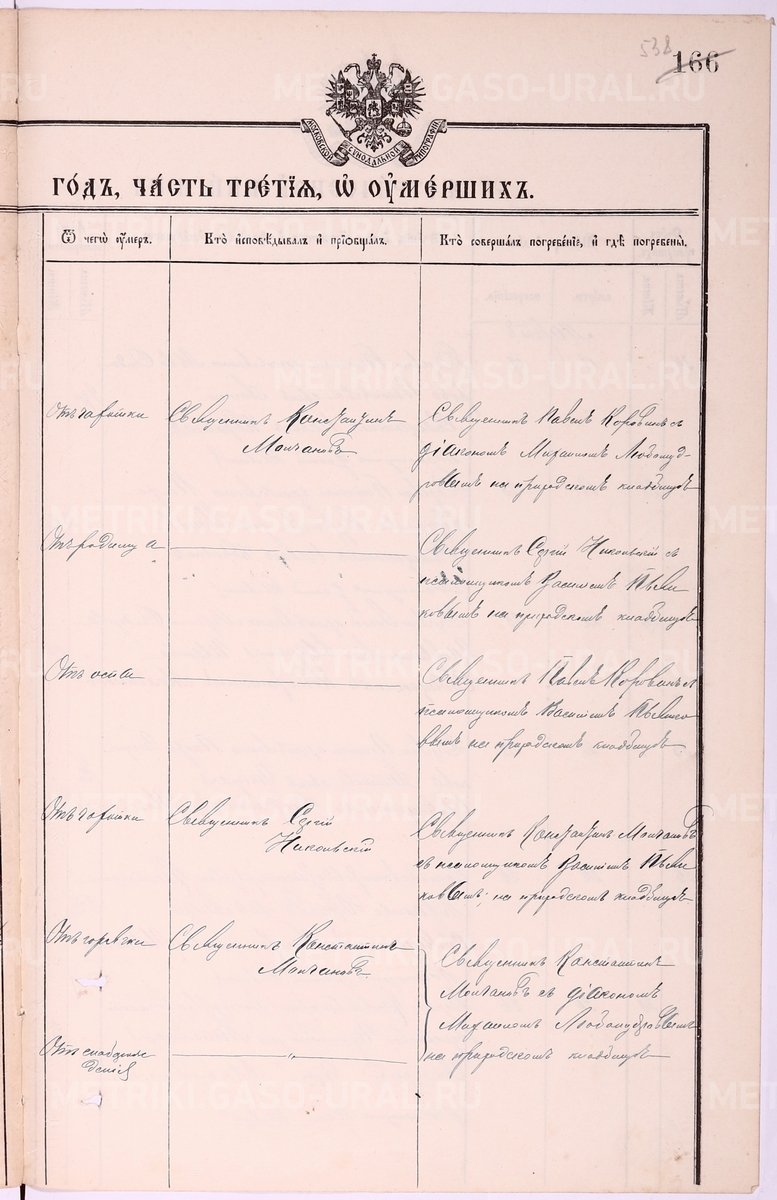 538
166
МОСКОВСКОЙ СѴНОДАЛЬНОЙ ТИПОГРАФІИ
ГО́ДЪ, ЧА́СТЬ ТРЕ́ТІѦ, Ѡ ОУ҆МЕ́РШИХЪ.
Ѿ чегѡ̀ оу҆́меръ.
Кто̀ и҆сповѣ́дывалъ и҆ прїѡбща́лъ.
Кто̀ соверша́лъ погребе́нїе, и҆ гдѣ̀ погребены̀.
Отъ чахотки
Священникъ Константинъ
Молчановъ
Священникъ Павелъ Коровинъ с
діакономъ Михаиломъ Любомуд-
ровымъ на приходскомъ кладбищѣ
Отъ родимца
Священникъ Сергій Никольскій с
псаломщикомъ Василіемъ
на приходскомъ кладбищѣ
Отъ оспы
Священникъ Павелъ Коровинъ с
псаломщикомъ Василіемъ
на приходскомъ кладбищѣ
Отъ чахотки
Священникъ Сергій
Никольскій
Священникъ Константинъ Молчановъ
съ псаломщикомъ Василіемъ
на приходскомъ кладбищѣ
Отъ горячки
Священникъ Константинъ
Молчановъ
Священникъ Константинъ
Молчановъ съ діакономъ
Михаиломъ Любомудровымъ
на приходскомъ кладбищѣ
Отъ
METRIKI.GASO-URAL.RU